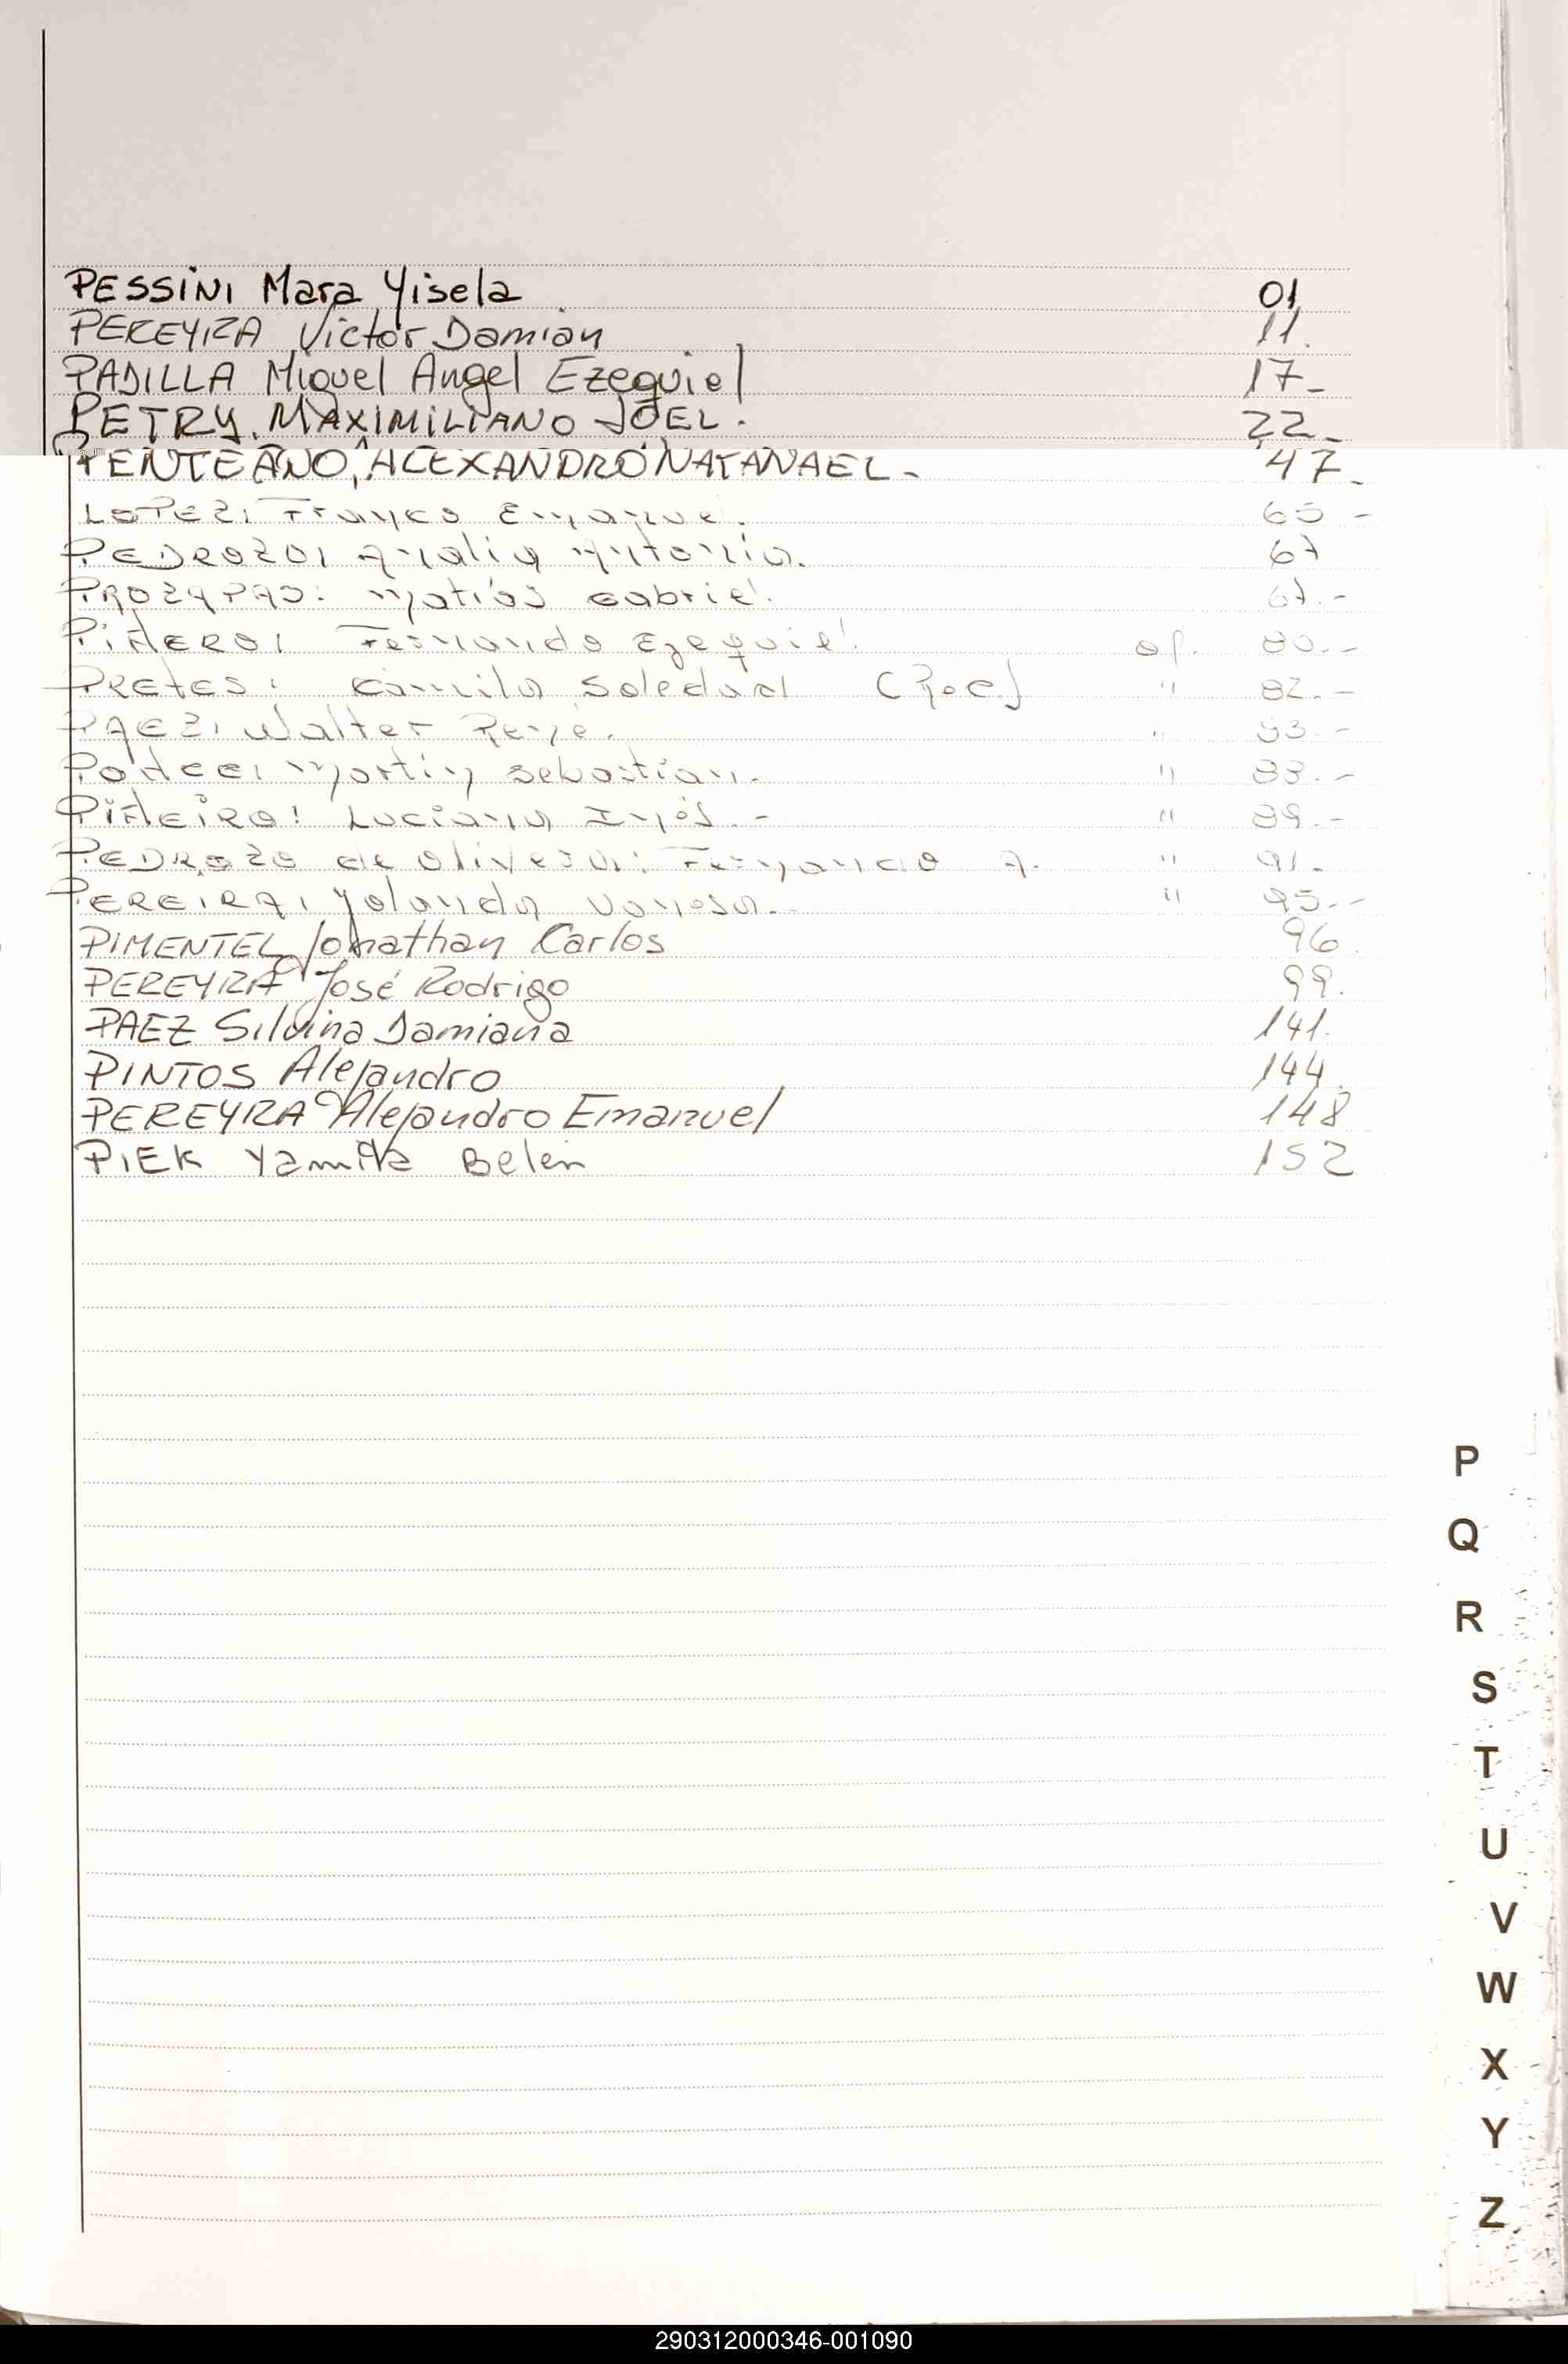 PESSINI Mara Yisela 01
PEREYRA Victor Damián 11.
PADILLA Miguel Angel Ezequiel 17-
PETRY. MAXIMILIANO JOEL. 22-
ALEXANDRO NATANAEL- 47.
LOPEZ: Franco Emanuel.
PEDROZO, Analia Antonia. 67
Matías Gabriel. 67.-
PIÑERO: Fernando Ezequiel. of. 80.-
PRETES: Camila Soledad (Rec) " 82.-
PAEZ, Walter René. "
Martin Sebastian. " 88.-
PIÑEIRO: Luciana Inés.- " 89.-
PEDROZO de Olivera: Fernando A. " 91.
PEREIRA, Yolanda Vanesa. " 95.-
PIMENTEL Jonathan Carlos 96.
PEREYRA José Rodrigo 99.
PAEZ Silvina Damiana 141.
PINTOS Alejandro 144.
PEREYRA Alejandro Emanuel 148
PIEK Yamila Belen 152
P
Q
R
S
T
U
V
W
X
Y
Z
290312000346-001090